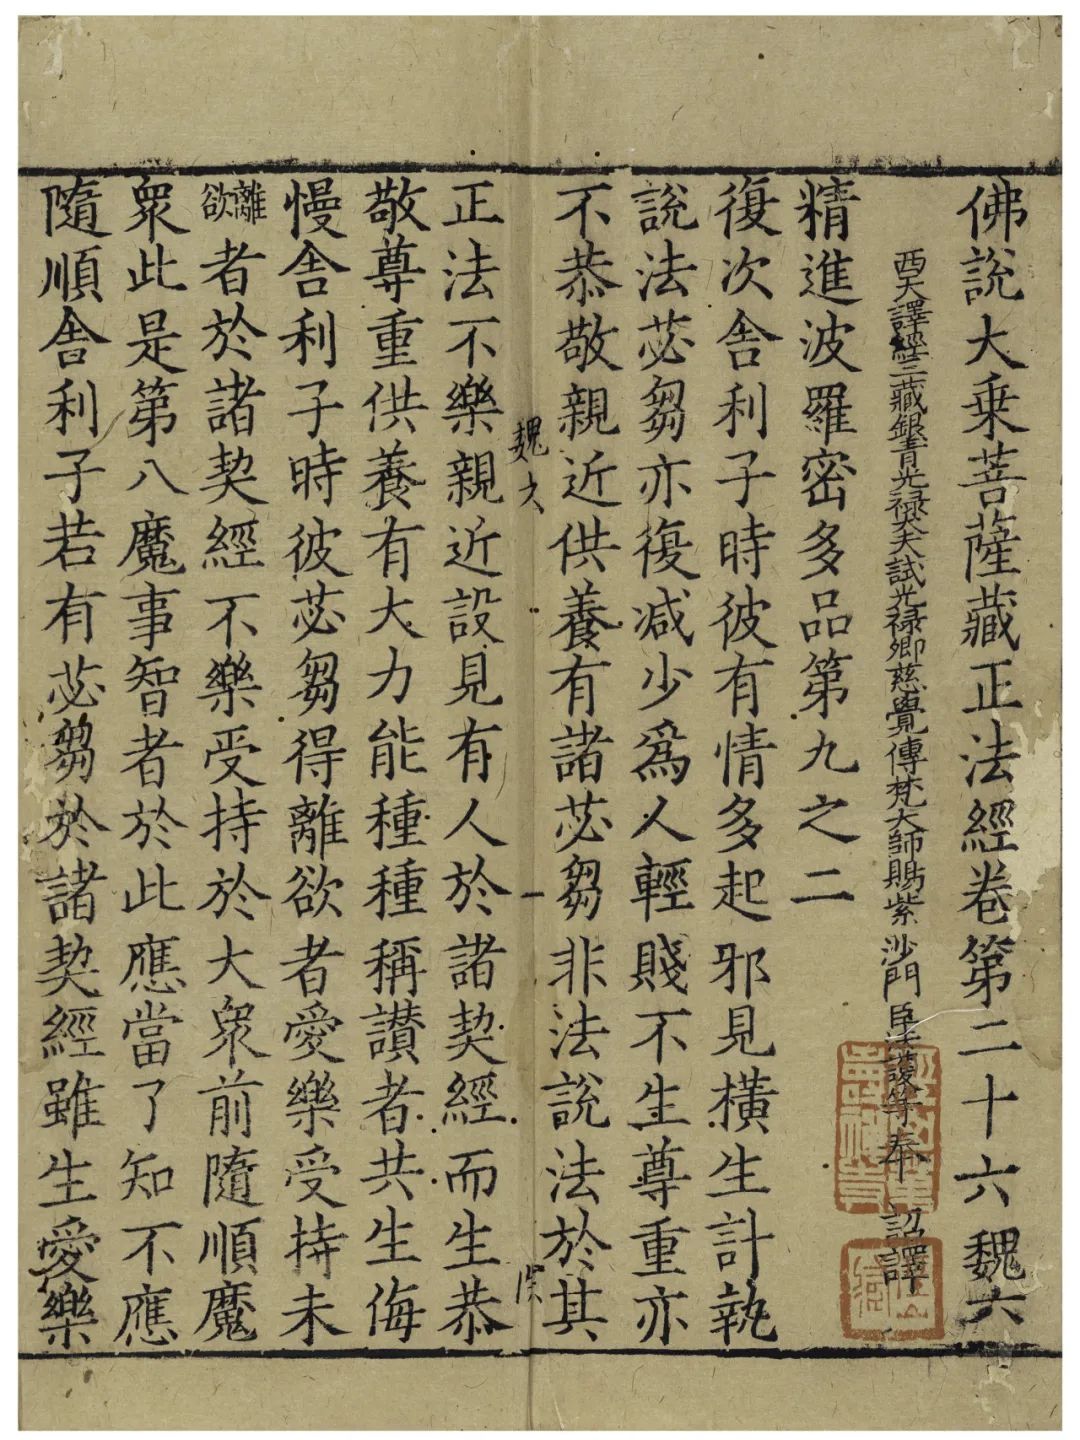 佛說大乗菩薩藏正法經卷第二十六 魏六
西天譯經三藏銀青光祿大夫試光祿卿慈覺傳梵大師賜紫沙門臣法護等奉 詔譯
精進波羅密多品第九之二
復次舍利子時彼有情多起邪見橫生計執
說法苾芻亦復減少爲人輕賤不生尊重亦
不恭敬親近供養有諸苾芻非法說法於其
魏六 一
正法不樂親近設見有人於諸契經而生恭
敬尊重供養有大力能種種稱讃者共生侮
慢舍利子時彼苾芻得離欲者愛樂受持未
離欲者於諸契經不樂受持於大衆前隨順魔
衆此是第八魔事智者於此應當了知不應
隨順舍利子若有苾芻於諸契經雖生愛樂